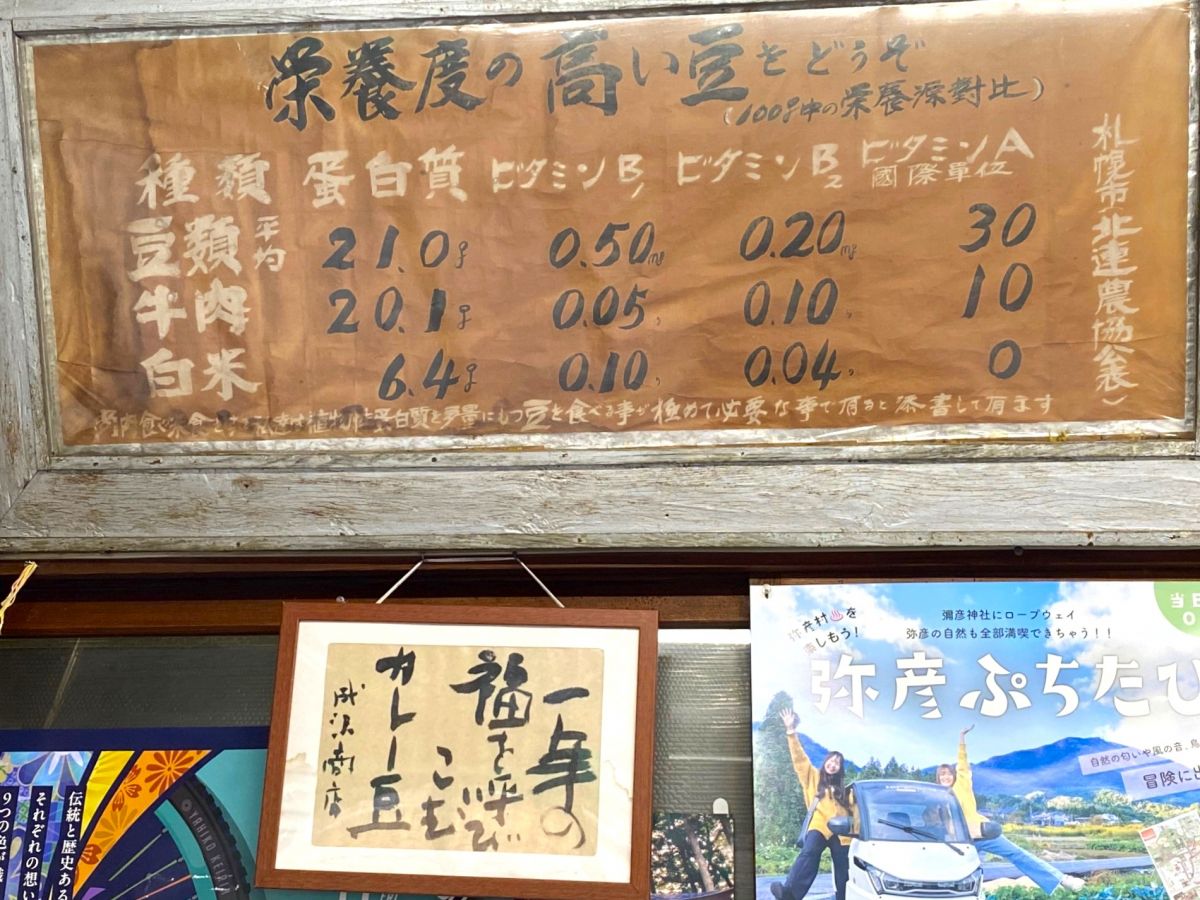 栄養度の高い豆をどうぞ
(100g中の栄養源對比)
種類 蛋白質 ビタミンB1 ビタミンB2 ビタミンA 國際單位
豆類平均 21.0g 0.50mg 0.20mg 30
牛肉 20.1g 0.05〃 0.10〃 10
白米 6.4g 0.10〃 0.04〃 0
植物性蛋白質を多量にもつ豆を食べる事が極めて必要な事で有ると添書して有ます
札幌市・北連農協公表)
一年の
福を呼び
こむ
カレー豆
成沢商店
弥彦村♨を
楽しもう!
彌彦神社にロープウェイ
弥彦の自然も全部満喫できちゃう!!
弥彦ぷちたび
自然の匂いや風の音、鳥
冒険に出
当日
伝統と歴史ある
それぞれの想い
9つの色が
YAHIKO KEI